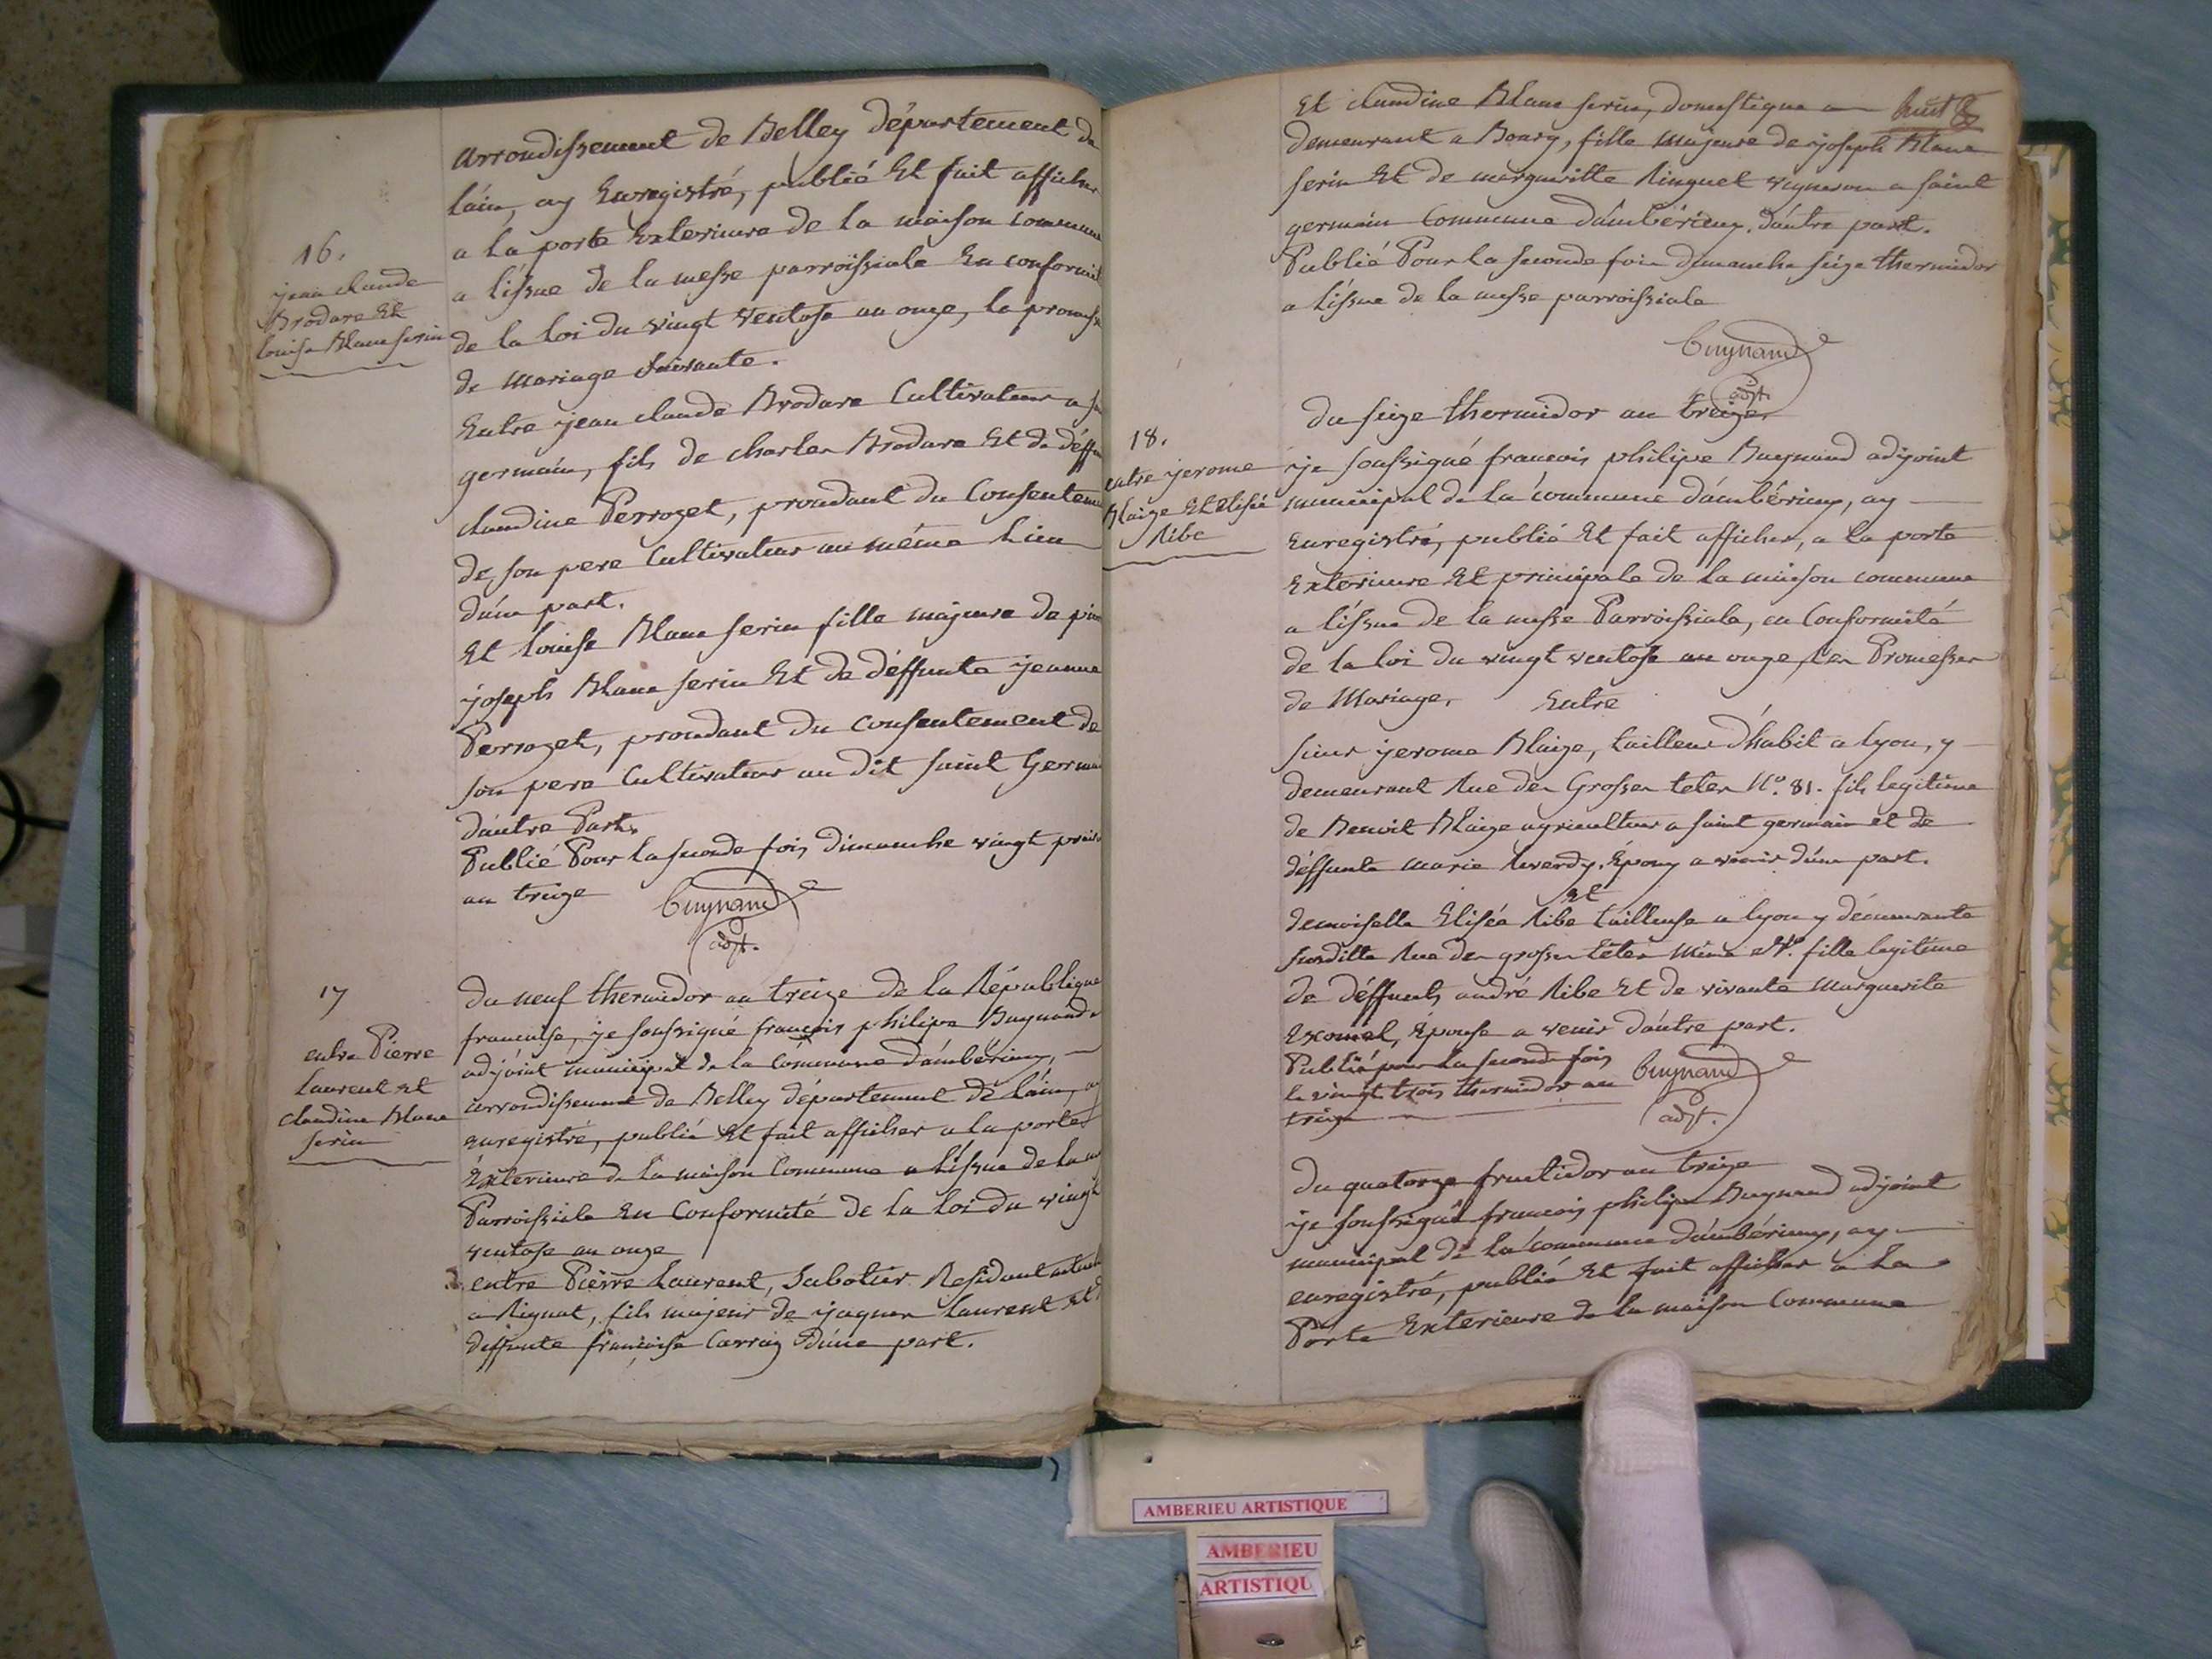 16.
jean claude
Brodare Et
louise Blanc serin
arrondissement de Belley département de
láin, ay Enregistré, publié Et fait afficher
a la porte Exterieure de la maison commune
a l'issue de la messe parroissiale En conformité
de la loi du vingt ventose an onze, la promesse
de mariage suivante.
Entre jean claude Brodare Cultivateur a
germain, fils de charles Brodare Et de déffu
claudine Perrozet, proudant du Consenteme
de son pere Cultivateur au même Lieu
dúne part.
Et louise Blanc serin fille majeure de
joseph Blanc serin Et de déffunte jeanne
Perrozet, proudant du consentement de
son pere Cultivateur au dit saint Germa
dáutre Part.
Publié Pour la seconde fois dimanche vingt prair
an treize
Buynand
adjt.
17
entre Pierre
laurent et
claudine Blanc
serin
du neuf thermidor an treize de la République
francaise, je soussigné françois philipe Buynand
adjoint municipal de la commune dámbérieux,
arrondissement de Belley département de láin, ay
enregistré, publié Et fait afficher a la porte
Exterieure de la maison Commune a l'issue de la
Parroissiale En Conformité de la loi du vingt
ventose an onze
entre Pierre Laurent, Sabotier Residant
a Rignat, fils majeur de jaques laurent et
deffunte françoise Carraz dúne part.
Et claudine Blanc serin, domestique huit
demeurant a Bourg, fille majeure de joseph Blanc
serin Et de margueritte Ringuet vigneron a saint
germain Commune dámbérieux. dáutre part.
Publié Pour la seconde fois dimanche seize thermidor
a l'issue de la messe parroissiale
Buynand
adjt.
18.
entre jerome
Blaize Et Elisée
Ribe
du seize thermidor an treize
je soussigné francois philipe Buynand adjoint
municipal de la commune dámbérieux, ay
enregistré, publié Et fait afficher, a la porte
Exterieure Et principale de la maison commune
a l'issue de la messe Parroissiale, en Conformité
de la loi du vingt ventose an onze, les Promesses
de Mariage, Entre
sieur jerome Blaize, tailleur d'habit a lyon, y
demeurant Rue des Grosses tetes No. 81. fils legitime
de Benoit Blaize agriculteur a saint germain et de
déffunte marie Époux a venir dúne part.
Et
demoiselle Elisée Ribe tailleuse a lyon y démeurante
susditte Rue des grosses tétes même No. fille legitime
de déffunt andré Ribe Et de vivante marguerite
Épouse a venir dáutre part.
Publié pour la seconde fois
le vingt trois thermidor an
treize
Buynand
adjt.
du quatorze fructidor an treize
je soussigné francois philipe Buynand adjoint
municipal de la commune dámbérieux, ay
enregistré, publié Et fait afficher a la
Porte Exterieure de la maison Commune
AMBERIEU ARTISTIQUE
AMBERIEU
ARTISTIQU